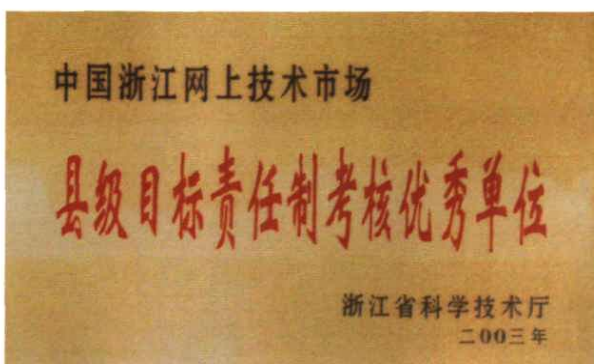 中国浙江网上技术市场
县级目标责任制考核优秀单位
浙江省科学技术厅
二00三年